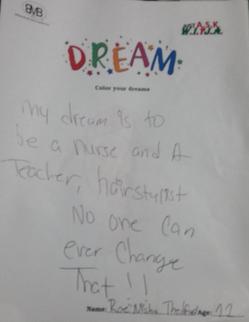 BMB
ASK
DREAM
Color your dreams
my dream is to
be a nurse and A
Teacher, hairstylist
No one can
ever Change
That !!
Name: Age: 12